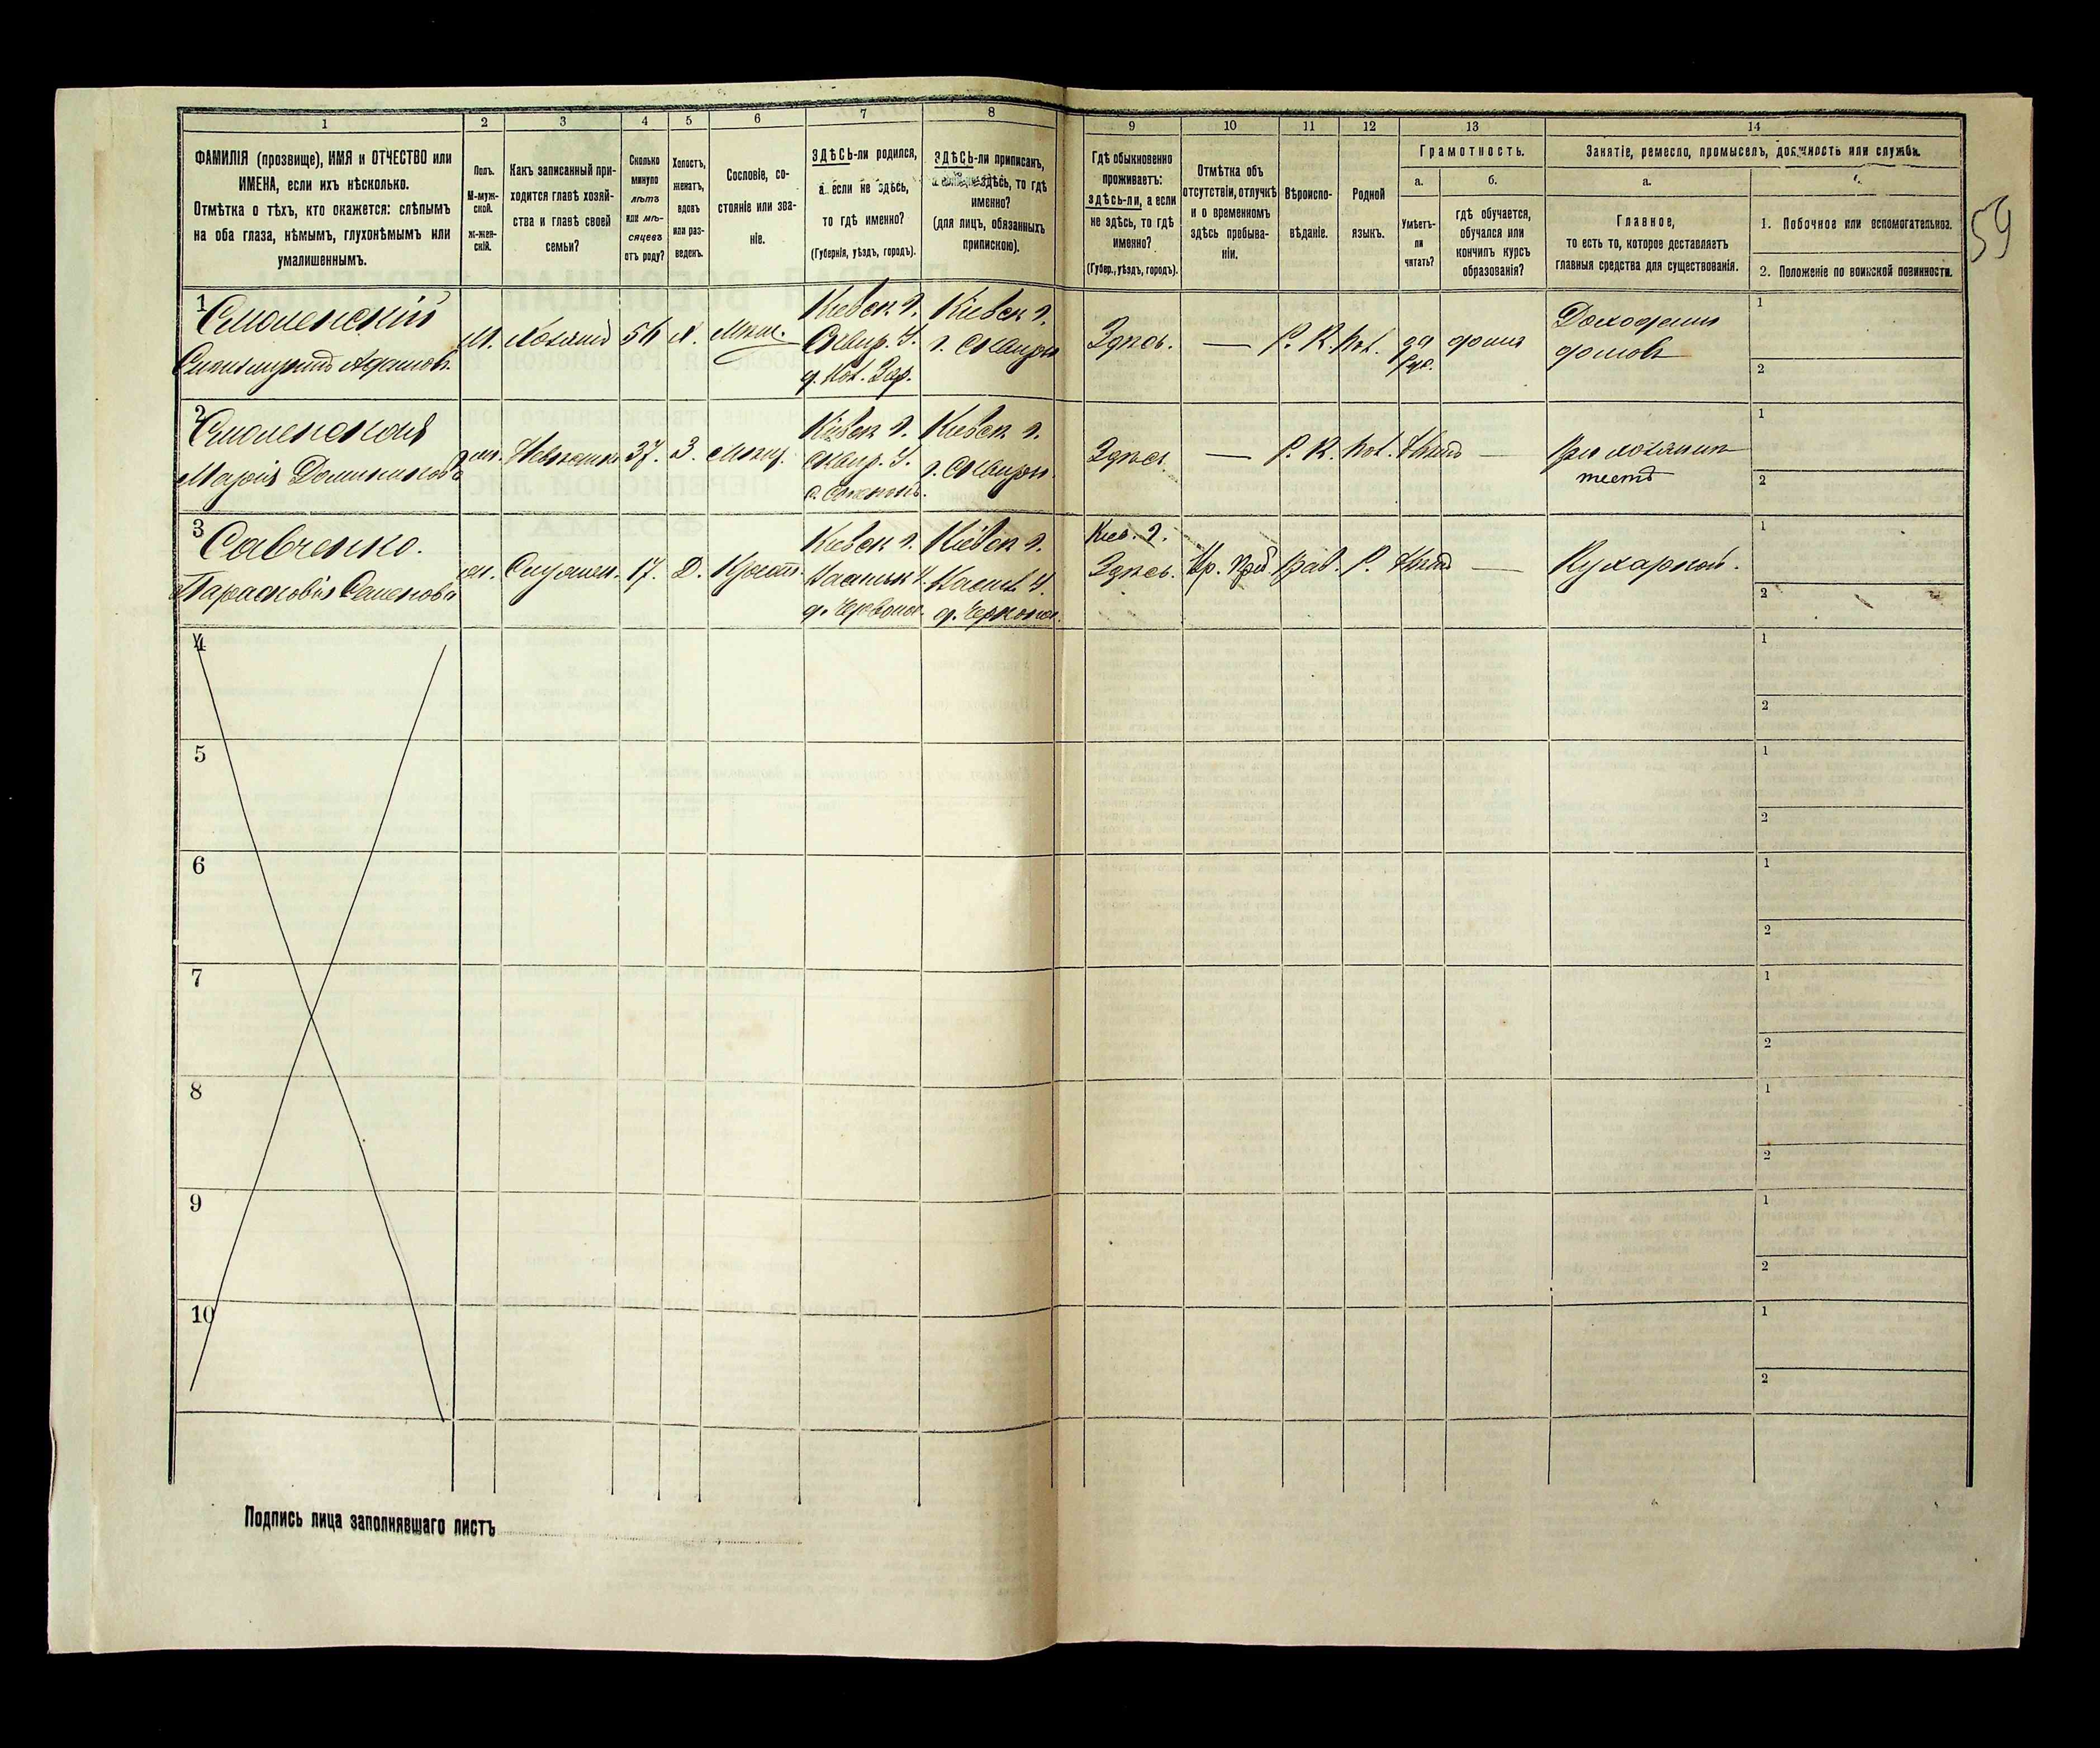 1
2
3
4
5
6
7
8
9
10
11
12
13
14
ФАМИЛІЯ (прозвище), ИМЯ и ОТЧЕСТВО или
ИМЕНА, если ихъ нѣсколько.
Отмѣтка о тѣхъ, кто окажется: слѣпымъ
на оба глаза, нѣмымъ, глухонѣмымъ или
умалишеннымъ.
Полъ.
М-муж-
ской.
Ж-жен-
скій.
Какъ записанный при-
ходится главѣ хозяй-
ства и главѣ своей
семьи?
Сколько
минуло
лѣтъ
или мѣ-
сяцевъ
отъ роду?
Холостъ,
женатъ,
вдовъ
или раз-
веденъ.
Сословіе, со-
стояніе или зва-
ніе.
ЗДѢСЬ-ли родился,
а если не здѣсь,
то гдѣ именно?
(Губернія, уѣздъ, городъ).
ЗДѢСЬ-ли приписанъ,
а если не здѣсь, то гдѣ
именно?
(для лицъ, обязанныхъ
припискою).
Гдѣ обыкновенно
проживаетъ:
здѣсь-ли, а если
не здѣсь, то гдѣ
именно?
(Губер., уѣздъ, городъ).
Отмѣтка объ
отсутствіи, отлучкѣ
и о временномъ
здѣсь пребыва-
ніи.
Вѣроиспо-
вѣданіе.
Родной
языкъ.
Грамотность.
а.
Умѣетъ-
ли
читать?
б.
гдѣ обучается,
обучался или
кончилъ курсъ
образованія?
Занятіе, ремесло, промыселъ, должность или служба.
а.
Главное,
то есть то, которое доставляетъ
главныя средства для существованія.
1. Побочное или вспомогательное.
2. Положеніе по воинской повинности.
59
1
Смоленскій
Адамовъ.
М. Хозяинъ 56 Х. Мѣщ.
Кіевск г.
Сквир. У.
Кіевск г.
г. Сквира
Здѣсь. — Р. К. Пол. да дома
Доходами
домовъ
1
2
2
Смоленская
Марія Доминиковна
37. З. Мѣщ.
Кіевск г.
Сквир. У.
Кіевск г.
г. Сквира.
Здѣсь — Р. К. Пол. Нѣтъ —
При хозяинѣ
1
2
3
Савченко.
Парасковія Семенова
Служан. 17. Д. Крест.
Кіевск г.
Кіевск г.
Кіев. г.
Здѣсь. Вр. преб. Прав. Р. Нѣтъ —
Кухаркой.
1
2
4
1
2
5
1
2
6
1
2
7
1
2
8
1
2
9
1
2
10
1
2
Подпись лица заполнявшаго листъ